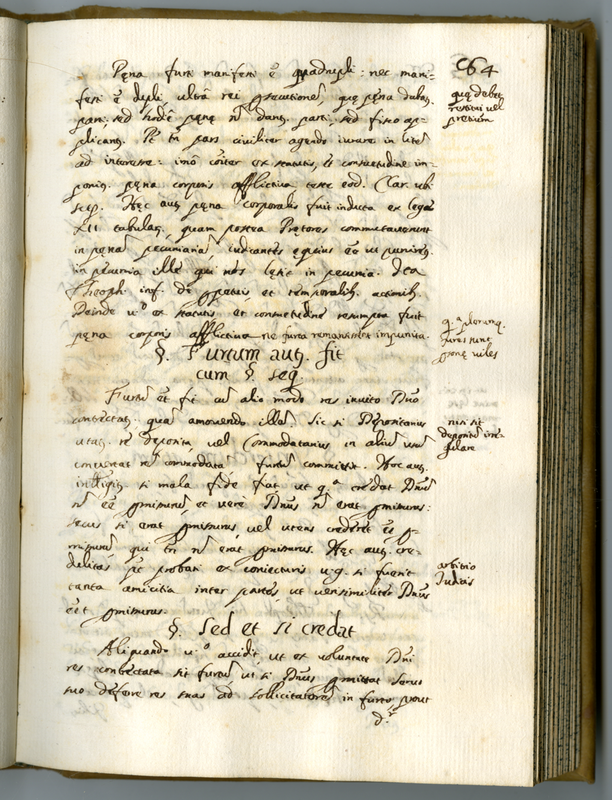 264
Pęna furti manifesti ẽ quadrupli: nec mani-
festi ẽ dupli, ultra rei psecutionẽ, quę pęna dabat.
parti; sed hodie pęnę ñ dant. parti, sed fisco ap-
plicant. Pt tñ pars civiliter agendo iurare in litẽ
ad interesse: imò coiter ex statutis, et consuetudine im-
ponit. pęna corporis afflictiva teste eod. Clar. ubi
sup. Hęc aut. pęna corporalis fuit inducta ex lege
XII tabulaʒ, quam postea Prętores commutaverunt
in pęnã pecuniariã, iudicantes equius eẽ ut puniret.
in pecunia ille qui nos lęsit in pecunia. Ita
Theoph. inf. de ppetuis et temporalib. actionib.
Deinde u.º ex statutis et consuetudine resumpta fuit
pęna corporis afflictiva ne furta remanerent impunita.
quę debet
restitui vel
pretium
q.ª plerumq.
fures sunt
psonę viles
§. Furtum aut. fit
cum §. seq
Furtũ et fit cũ alio modo res invito Dño
contrectat. quã amovendo illã. Sic si Depositarius
utat. re deposita, vel Commodatarius in aliũ usũ
convertat rẽ commodatã furtũ committit. Hoc aut.
intelligit. si mala fide fiat ut q.ª credat Dñũ
ñ eẽ pmissurũ, et verè Dñus ñ erat pmissurus:
secus si erat pmissurus, vel utens crederet eũ p-
missurũ qui tñ ñ erat pmissurus. Hęc aut. cre-
delitas pt probari ex coniecturis v.g. si fuerit
tanta amicitia inter partes, ut verisimiliter Dñus
eẽt pmissurus.
nisi sit
depositũ irre-
gulare
arbitrio
Iudicis
§. Sed et si credat
Aliquando u.º accidit, ut ex voluntate Dñi
res contrectata sit furtiva ut si Dñus pmittat servo
suo deferre res suas ad sollicitatorẽ in furto prout
d.r